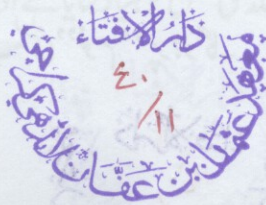 دار الافتاء
٤٠/١١
معهد عثمان بن عفان لانڈھی کراچی